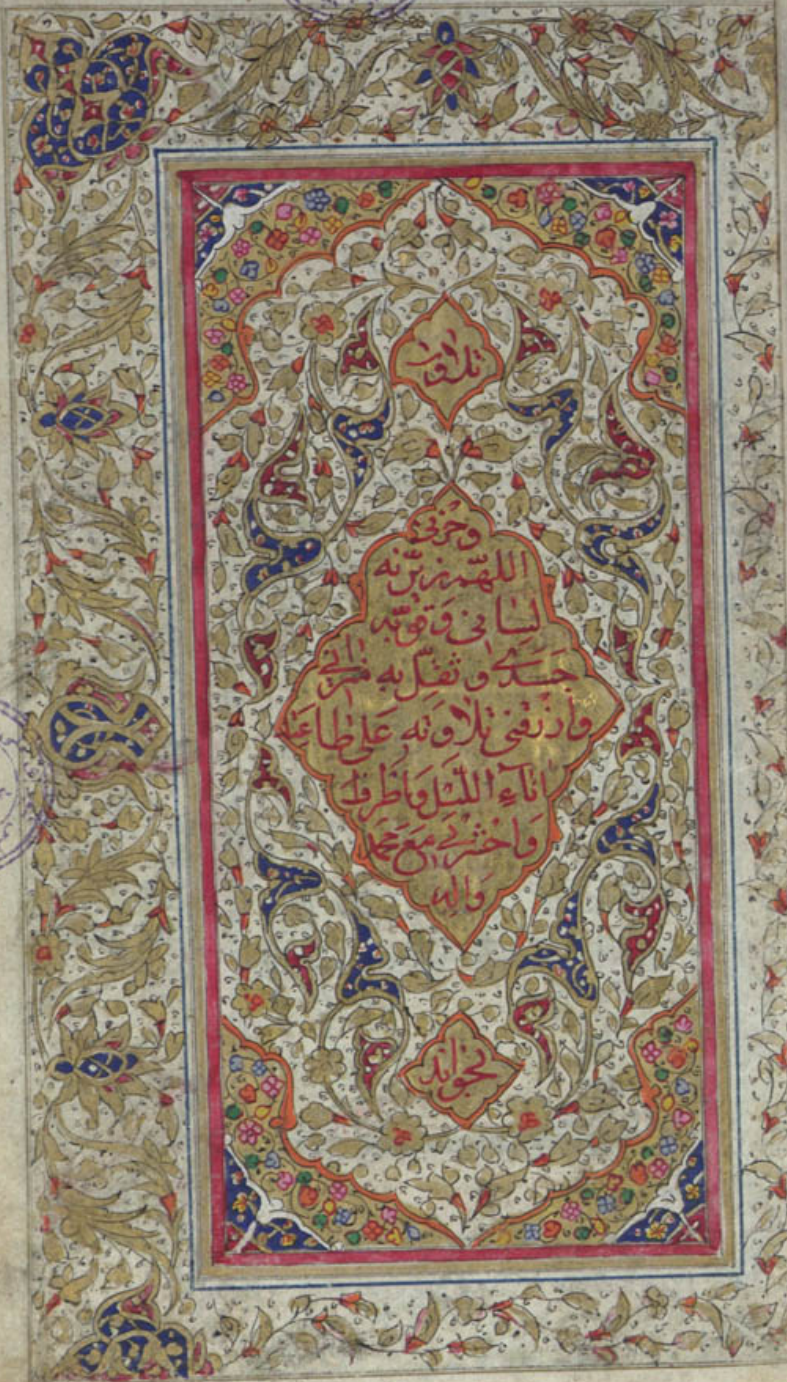 تلاوت
وحزنی
اللهم زین به
لسانی و قو به
جسدی و ثقل به میزانی
وارزقنی تلاوته علی طاعته
اناء اللیل واطراف
واحشرنی مع محمد
واله
بخواند